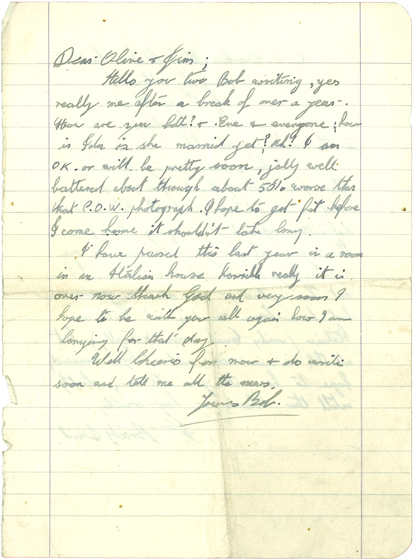 Dear Olive & Jim;
Hello you two Bob writing, yes
really me after a break of over a year.
How are you both? & Eve & everyone; how
is Ida is she married yet? I am
OK. or will be pretty soon, jolly well
battered about though about 50% worse than
that P.O.W. photograph. I hope to get fit before
I come home it shouldn't take long.
I have passed this last year in a room
in an Italian house horrible really it is
over now thank God and very soon I
hope to be with you all again how I am
longing for that day.
Well Cheerio for now & do write
soon and tell me all the news.
Yours Bob.